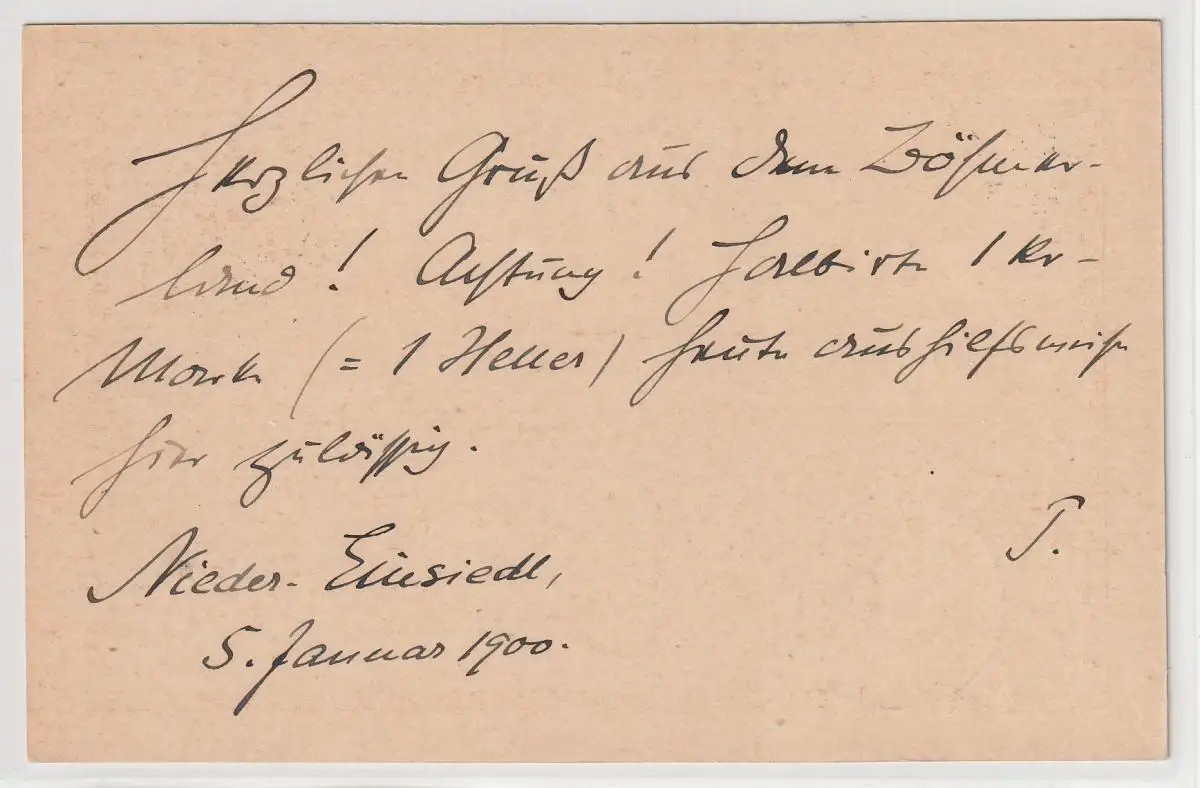 Herzlichen Gruß aus dem Böhmer-
land! Achtung! Halbirte 1 Kr-
Marke (= 1 Heller) heute aushilfsweise
hier zulässig.
T.
Nieder-Einsiedl,
5. Januar 1900.